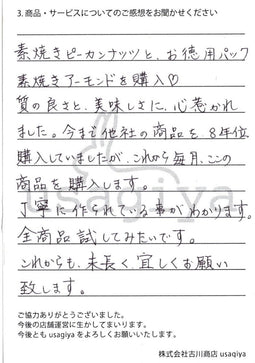 3. 商品・サービスについてのご感想をお聞かせください
素焼きピーカンナッツと、お徳用パック
素焼きアーモンドを購入♡
質の良さと、美味しさに、心惹かれ
ました。今まで他社の商品を8年位
購入していましたが、これから毎月、ここの
商品を購入します。
usagiya
丁寧に作られている事がわかります。
全商品試してみたいです。
これからも、末長く、宜しくお願い
致します。
ご協力ありがとうございました。
今後の店舗運営に生かしてまいります。
今後とも usagiya をよろしくお願いいたします。
株式会社古川商店 usagiya